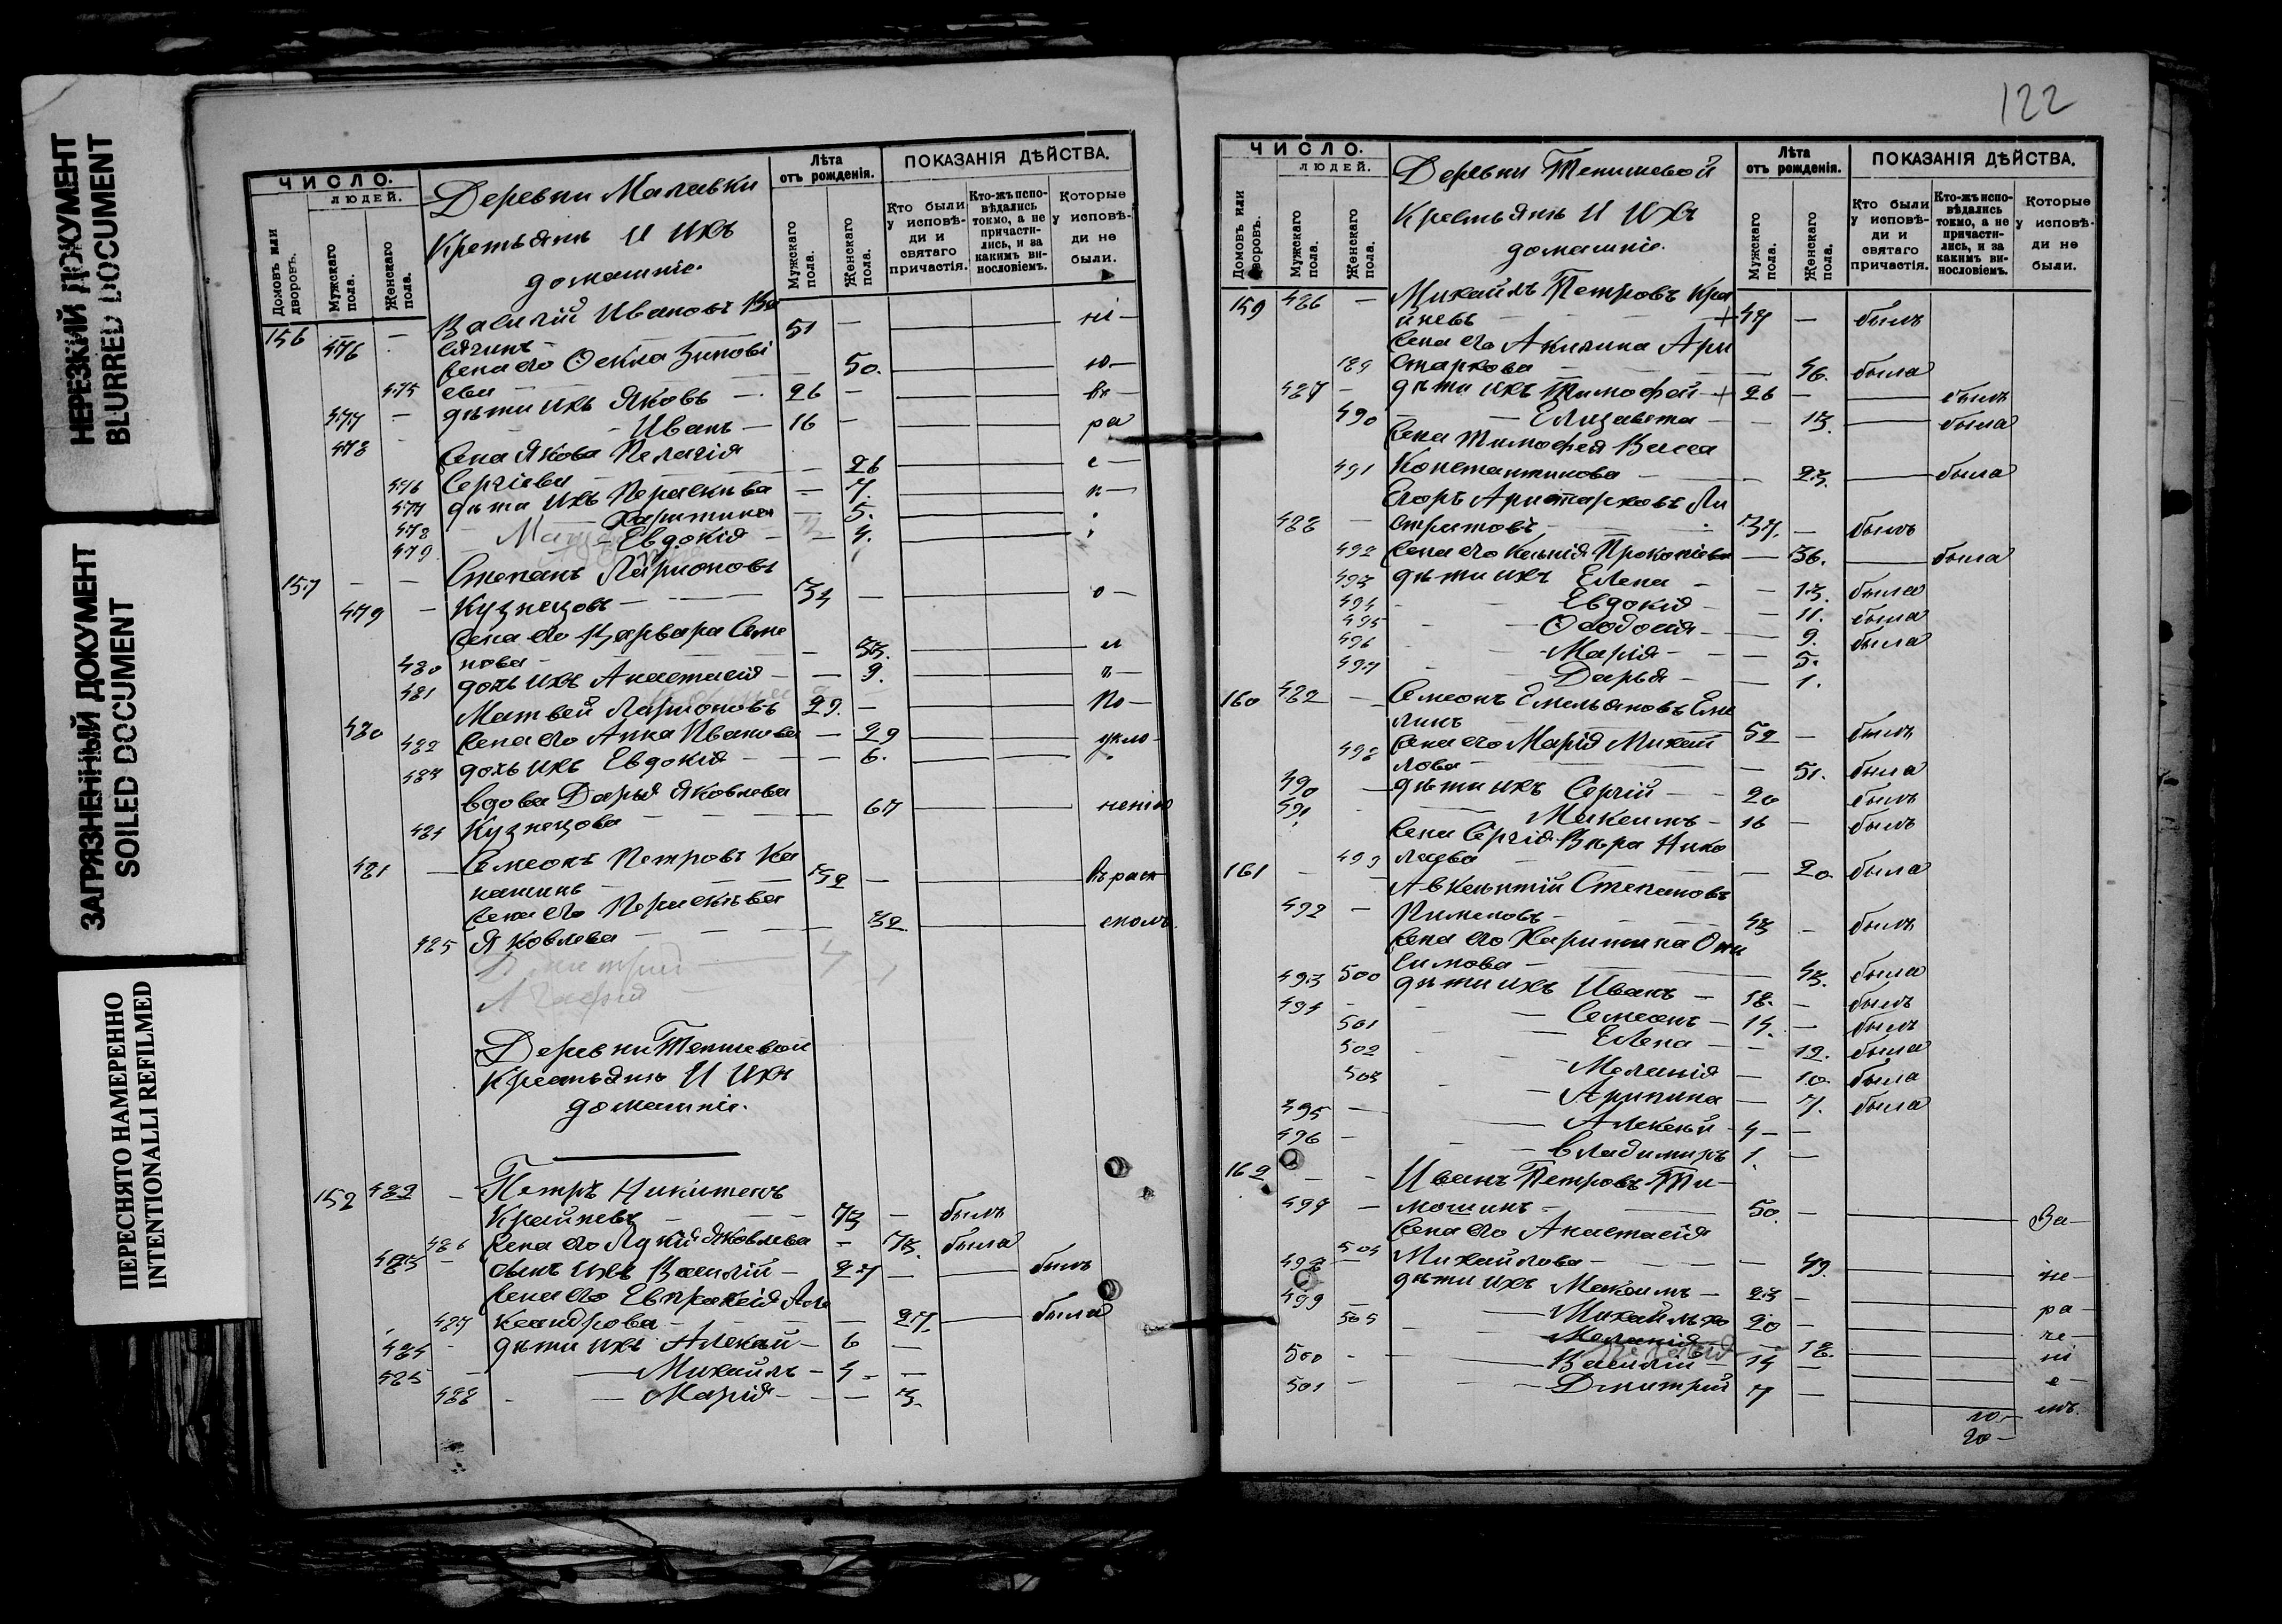 НЕРЕЗКИЙ ДОКУМЕНТ
BLURRED DOCUMENT
ЗАГРЯЗНЕННЫЙ ДОКУМЕНТ
SOILED DOCUMENT
ПЕРЕСНЯТО НАМЕРЕННО
INTENTIONALLI REFILMED
ЧИСЛО.
ЛЮДЕЙ.
Домовъ или дворовъ.
Мужскаго пола.
Женскаго пола.
Деревни Малавки
Крестьяне И ихъ
домашніе.
Лѣта
отъ рожденія.
Мужскаго пола.
Женскаго пола.
ПОКАЗАНІЯ ДѢЙСТВА.
Кто были у исповѣди и святаго причастія.
Кто-жъ исповѣдались токмо, а не причастились, и за какимъ винословіемъ.
Которые у исповѣди не были.
156 476 — Василій Ивановъ 51 —
жена его Ѳекла Зиновіева
475 — 50.
477 — дѣти ихъ Яковъ — 26 —
478 Иванъ — 16 —
жена Якова Пелагія
476 Сергіева — 26
477 дѣти ихъ Параскива — 7.
478 Харитина — 5.
479 Евдокія — 4.
157 — — Степанъ Ларіоновъ
479 — Кузнецовъ — 34 —
жена его Варвара Семе
480 нова — 33.
481 дочь ихъ Анастасія — 9.
480 Матвей Ларіоновъ 29. —
482 жена его Анна Иванова — 29
483 дочь ихъ Евдокія — 6.
вдова Дарья Яковлева
484 Кузнецова — 67
481 — Семеонъ Петровъ 32 —
жена его Параскива
485 Яковлева — 32.
Дмитрий
Деревни Тепишевой
Крестьяне И ихъ
домашніе.
158 482 — Петръ Никитинъ
Крайневъ 73 — былъ
486 жена его Лукія Яковлева — 73. была
483 — сынъ ихъ Василій — 27 — былъ
жена его Евпраксія Але
487 ксандрова — 27 — была
484 — дѣти ихъ Алексей — 6 —
485 — Михаилъ — 4 —
488 — Марія — 3.
122
ЧИСЛО.
ЛЮДЕЙ.
Домовъ или дворовъ.
Мужскаго пола.
Женскаго пола.
Деревни Тепишевой
Крестьяне И ихъ
домашніе.
Лѣта
отъ рожденія.
Мужскаго пола.
Женскаго пола.
ПОКАЗАНІЯ ДѢЙСТВА.
Кто были у исповѣди и святаго причастія.
Кто-жъ исповѣдались токмо, а не причастились, и за какимъ винословіемъ.
Которые у исповѣди не были.
159 486 — Михаилъ Петровъ Край
иневъ + 47 — былъ
жена его Акилина Ари
489 стархова — 46. была
487 — дѣти ихъ Тимофей + 26 — былъ
490 — Елизавета — 13. — была
жена Тимофея Васса
491 Константинова — 23. — была
Егоръ Аристарховъ
488 — 37. — былъ
492 жена его Ксенія Прокопіева — 36. — была
493 дѣти ихъ Елена — 13. была
494 Евдокія — 11. была
495 Ѳеодосія — 9. была
496 Марія — 5.
497 Дарья — 1.
160 489 — Семеонъ Емельяновъ Еме
линъ 52 — былъ
498 жена его Марія Михай
лова — 51. была
490 — дѣти ихъ Сергій — 20 былъ
491 Максимъ — 16 — былъ
жена Сергія Вѣра Нико
499 лаева — 20 была
161 — — Авксентій Степановъ
492 — Пименовъ — 43 — былъ
жена его Харитина Они
500 симова — 43. была
493 дѣти ихъ Иванъ — 18. — былъ
494 — Семеонъ — 14. — былъ
501 Елена — 12. была
502 Меланія — 10. была
503 Арипина — 7. была
495 — Алексей — 4 —
496 — Владимиръ 1. —
162 — — Иванъ Петровъ Ти
497 — мошинъ — 50. —
жена его Анастасія
504 Михайлова — 49.
498 дѣти ихъ Максимъ — 23 —
499 — Михаилъ 20 —
505 Меланія 18.
500 — Василій — 14 —
501 — Дмитрій 7 —
20 —